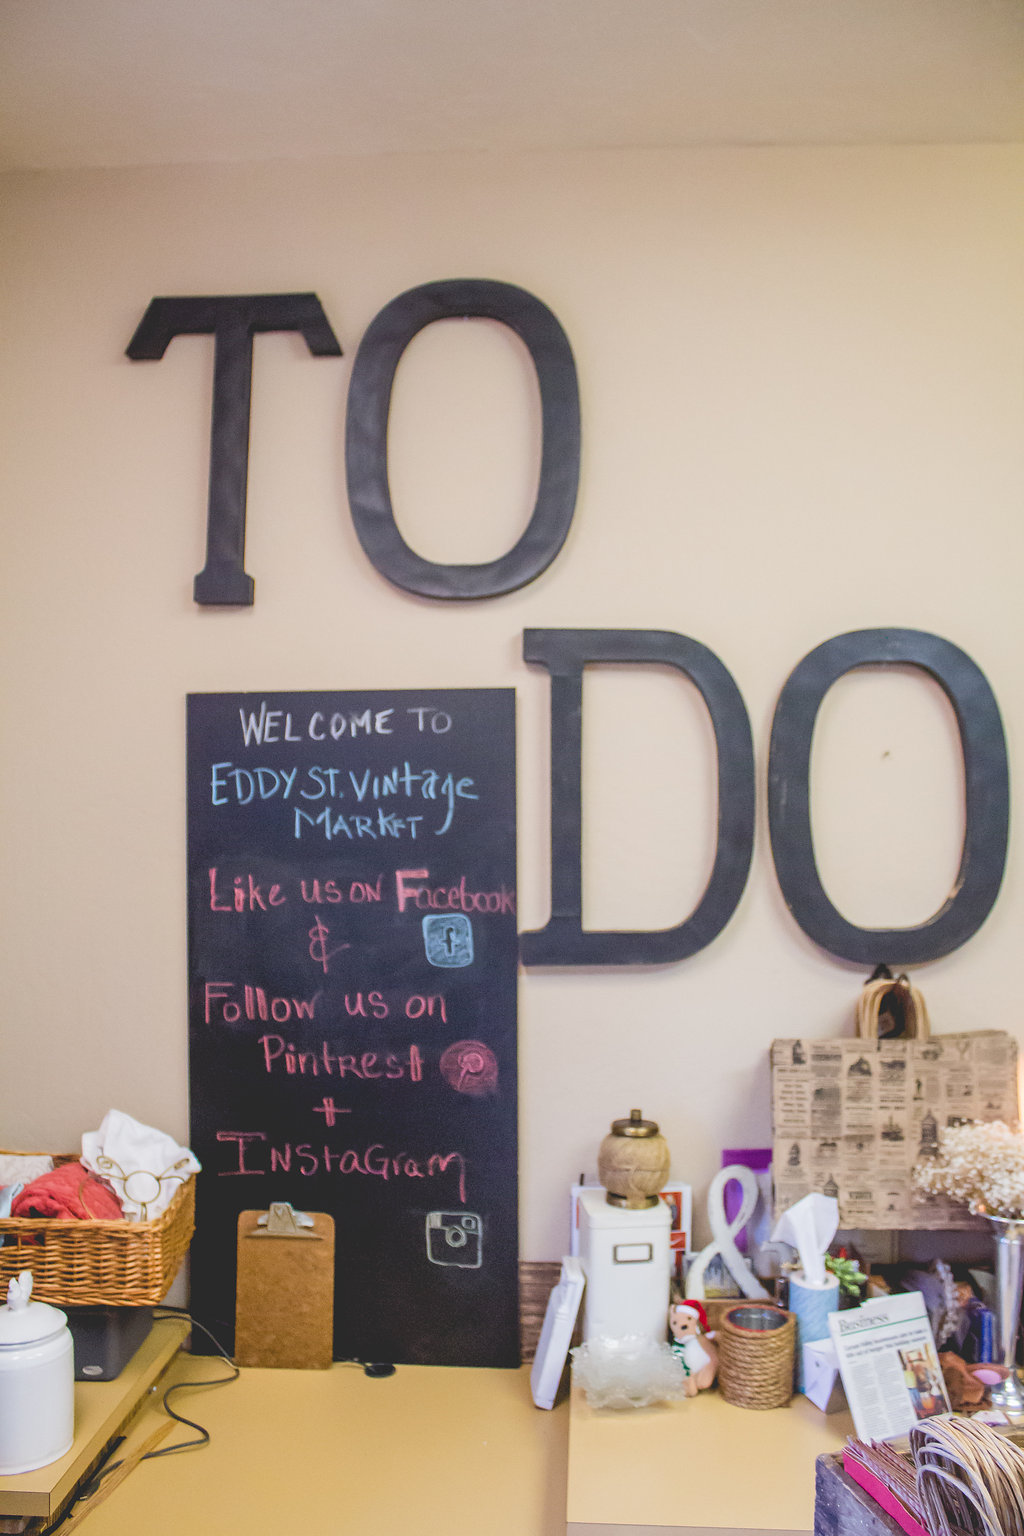 TO
DO
WELCOME TO
EDDY ST. VINtage
MARKET
Like us on Facebook
&
Follow us on
Pintrest
+
INStaGram
&
Business